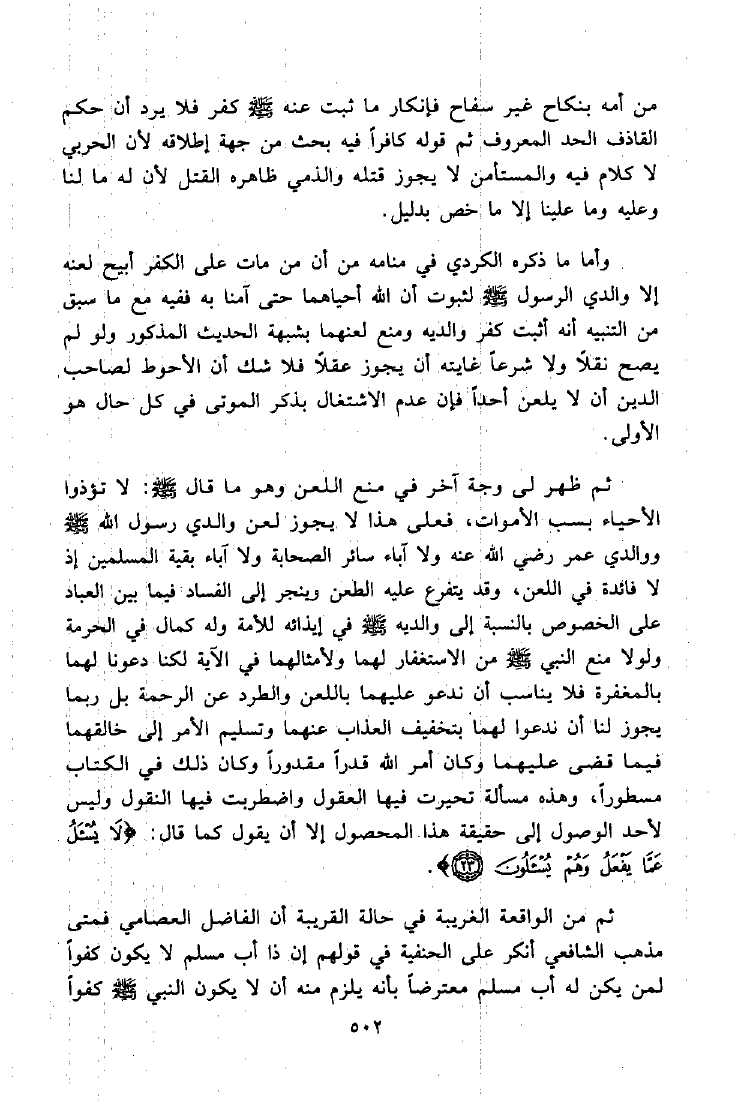 من أمه بنكاح غير سفاح فإنكار ما ثبت عنه ﷺ كفر فلا يرد أن حكم
القاذف الحد المعروف ثم قوله كافراً فيه بحث من جهة إطلاقه لأن الحربي
لا كلام فيه والمستأمن لا يجوز قتله والذمي ظاهره القتل لأن له ما لنا
وعليه وما علينا إلا ما خص بدليل.
وأما ما ذكره الكردي في منامه من أن من مات على الكفر أبيح لعنه
إلا والدي الرسول ﷺ لثبوت أن الله أحياهما حتى آمنا به ففيه مع ما سبق
من التنبيه أنه أثبت كفر والديه ومنع لعنهما بشبهة الحديث المذكور ولو لم
يصح نقلاً ولا شرعاً غايته أن يجوز عقلاً فلا شك أن الأحوط لصاحب
الدين أن لا يلعن أحداً فإن عدم الاشتغال بذكر الموتى في كل حال هو
الأولى.
ثم ظهر لى وجة آخر في منع اللعن وهو ما قال ﷺ: لا تؤذوا
الأحياء بسب الأموات، فعلى هذا لا يجوز لعن والدي رسول الله ﷺ
ووالدي عمر رضي الله عنه ولا آباء سائر الصحابة ولا آباء بقية المسلمين إذ
لا فائدة في اللعن، وقد يتفرع عليه الطعن وينجر إلى الفساد فيما بين العباد
على الخصوص بالنسبة إلى والديه ﷺ في إيذائه للأمة وله كمال في الخرمة
ولولا منع النبي ﷺ من الاستغفار لهما ولأمثالهما في الآية لكنا دعونا لهما
بالمغفرة فلا يناسب أن ندعو عليهما باللعن والطرد عن الرحمة بل ربما
يجوز لنا أن ندعوا لهما بتخفيف العذاب عنهما وتسليم الأمر إلى خالقهما
فيما قضى عليهما وكان أمر الله قدراً مقدوراً وكان ذلك في الكتاب
مسطوراً، وهذه مسألة تحيرت فيها العقول واضطربت فيها النقول وليس
لأحد الوصول إلى حقيقة هذا المحصول إلا أن يقول كما قال: ﴿لَا يُسْـَٔلُ
عَمَّا يَفْعَلُ وَهُمْ يُسْـَٔلُونَ ﴿٢٣﴾﴾.
ثم من الواقعة الغريبة في حالة القريبة أن الفاضل العصامي فمتى
مذهب الشافعي أنكر على الحنفية في قولهم إن ذا أب مسلم لا يكون كفواً
لمن يكن له أب مسلم معترضاً بأنه يلزم منه أن لا يكون النبي ﷺ كفواً
٥٠٢